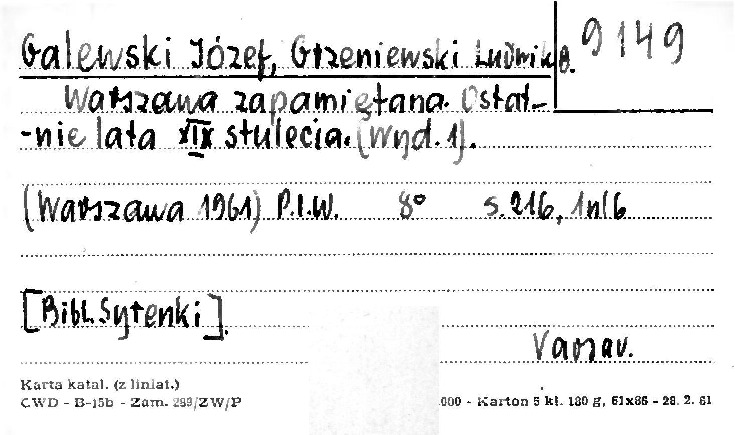 Galewski Józef, Grzeniewski Ludwik B. 9149
Warszawa zapamiętana. Ostat-
-nie lata XIX stulecia. (Wyd. 1).
(Warszawa 1961) P.I.W. 8° s. 216, 1nlb
[Bibl. Syrenki].
Varsav.
Karta katal. (z liniat.)
CWD - B-15b - Zam. 289/ZW/P
.000 - Karton 5 kl. 180 g, 61x86 - 28. 2. 61